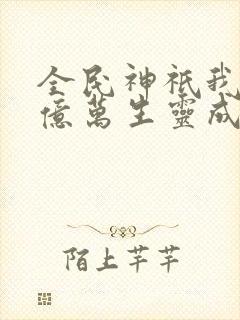 全民神祇我
億萬生靈成
陌上芊芊